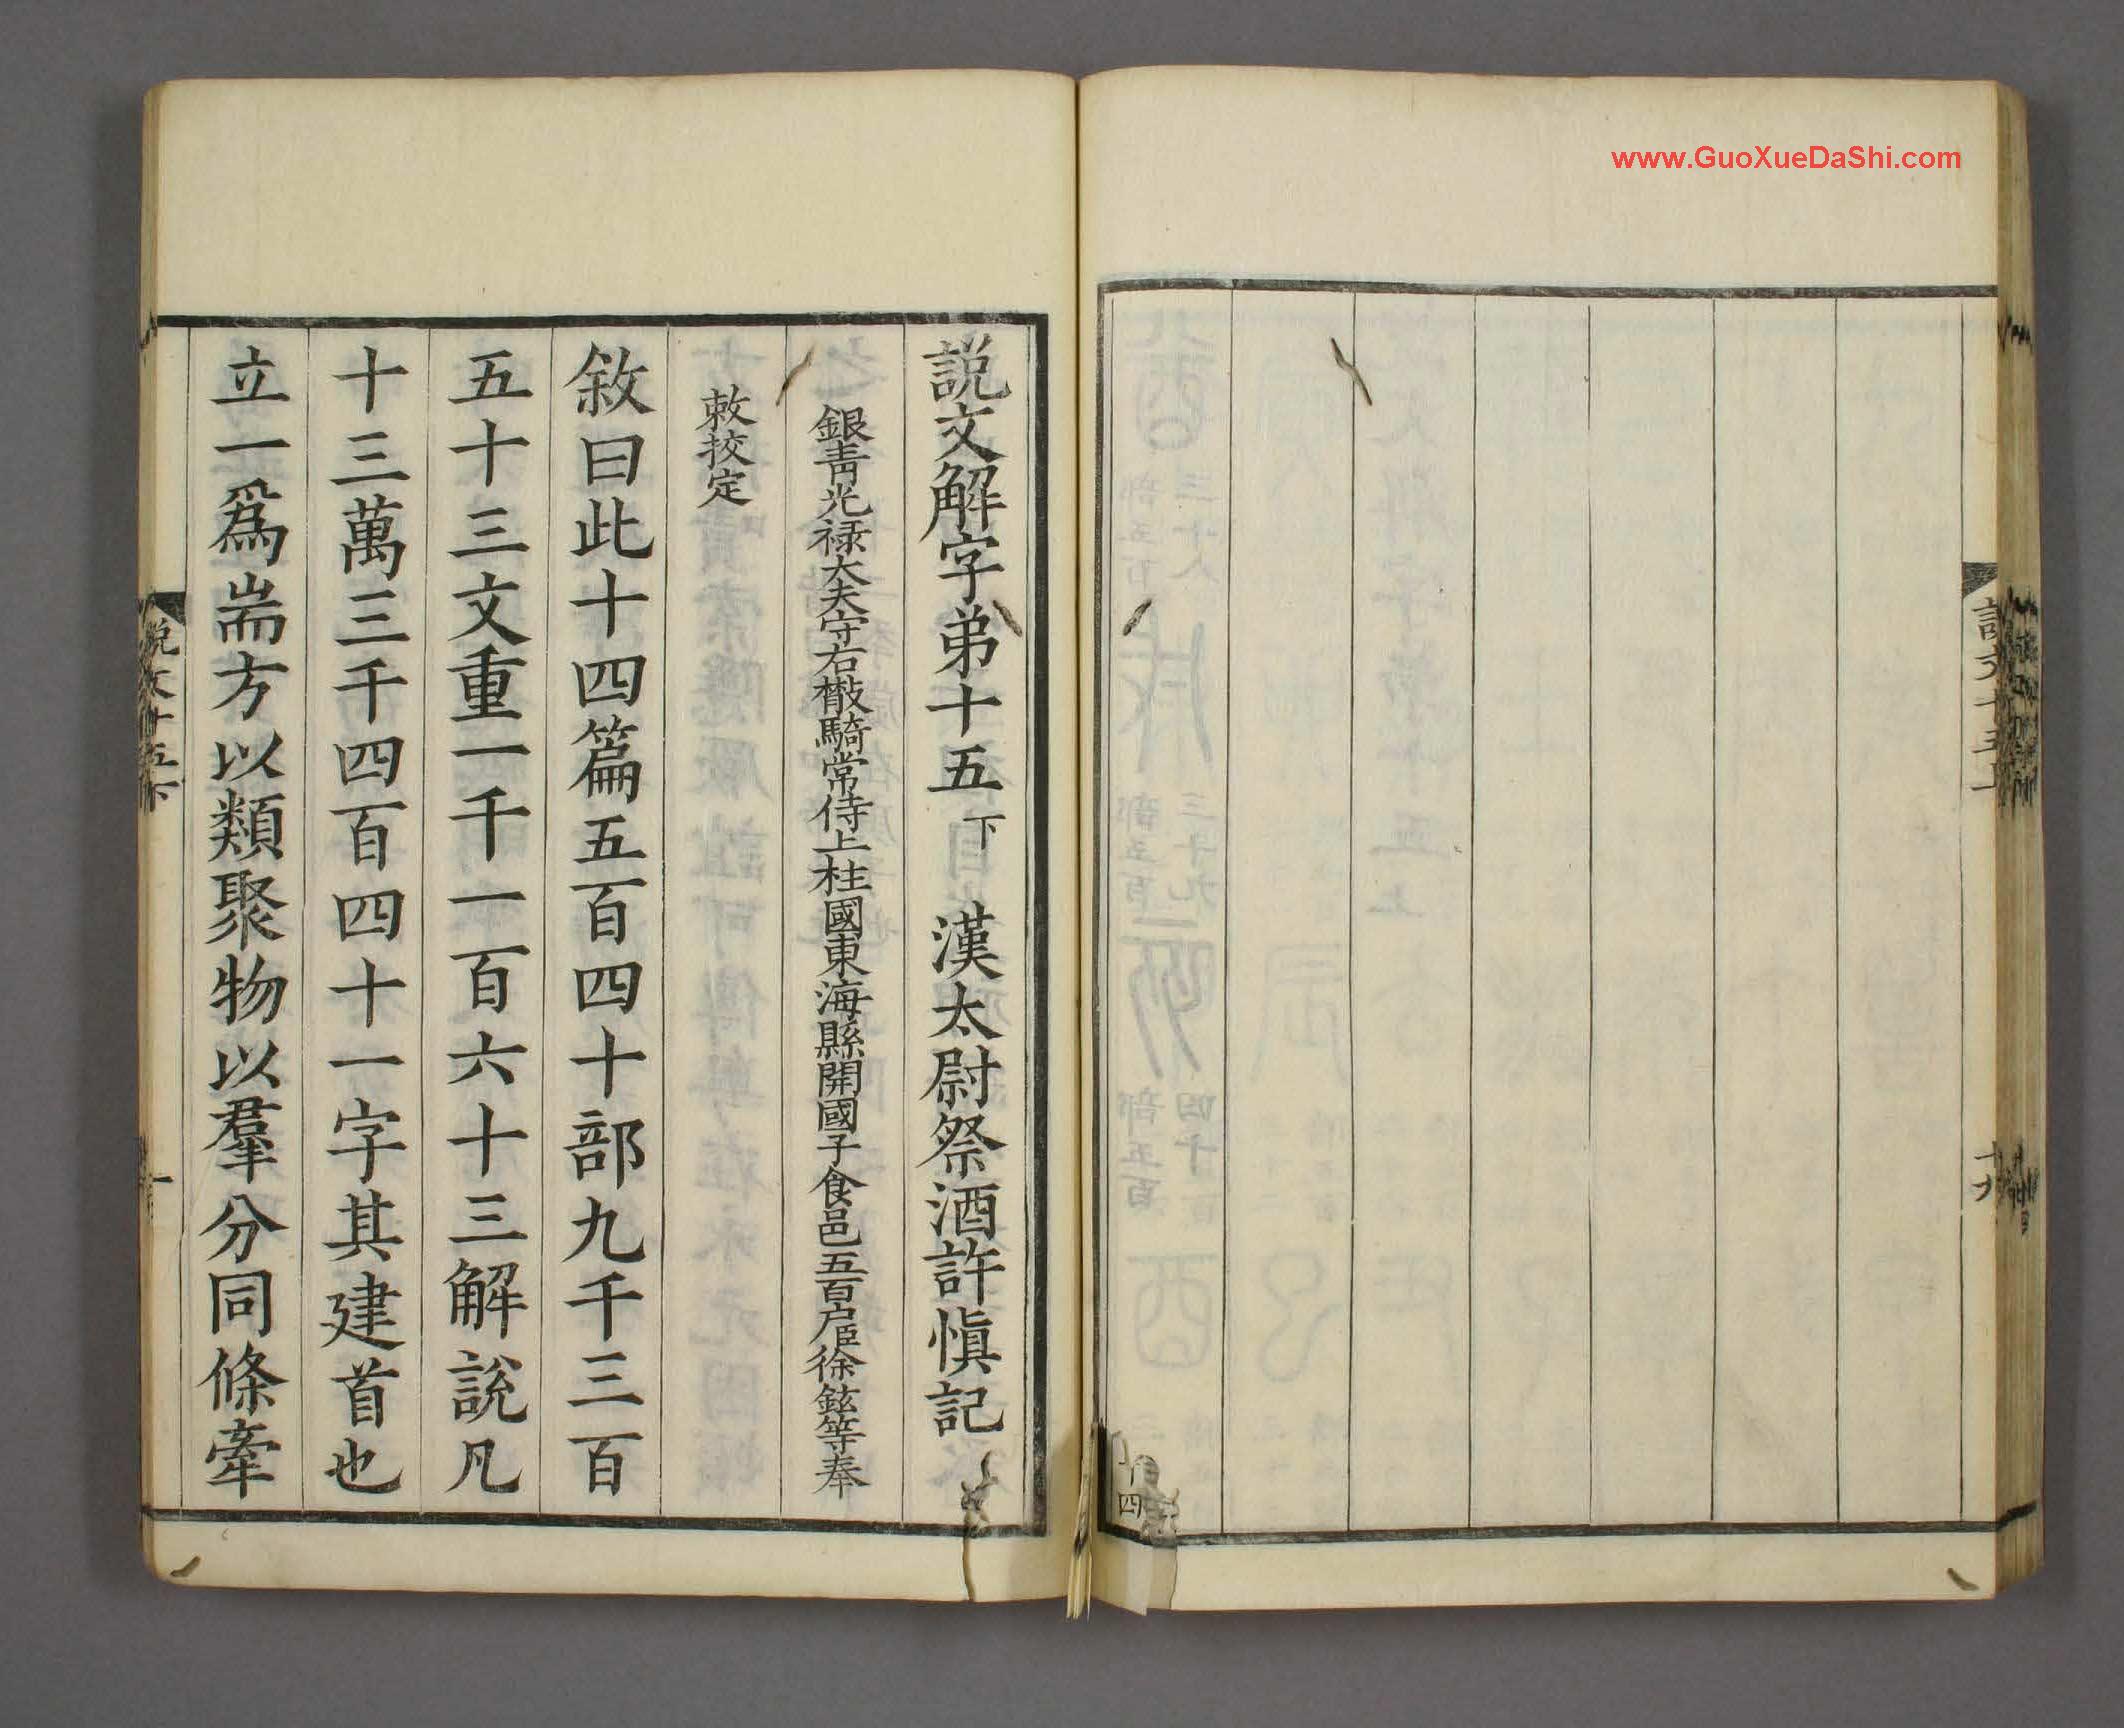 www.GuoXueDaShi.com
說文十五上
十九
說文解字弟十五下 漢太尉祭酒許愼記
銀青光祿大夫守右㪚騎常侍上柱國東海縣開國子食邑五百户臣徐鉉等奉
敕挍定
敘曰此十四篇五百四十部九千三百
五十三文重一千一百六十三解說凡
十三萬三千四百四十一字其建首也
立一爲耑方以類聚物以羣分同條牽
說文十五下
一